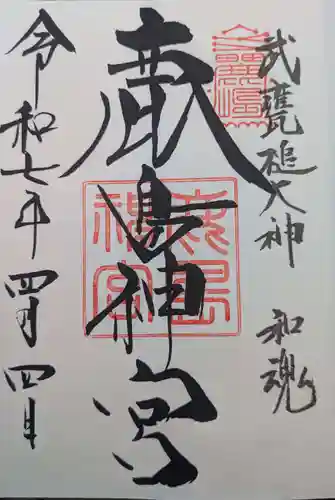 武甕槌大神 和魂
鹿島神宮
令和七年四月四日
鹿島
神宮